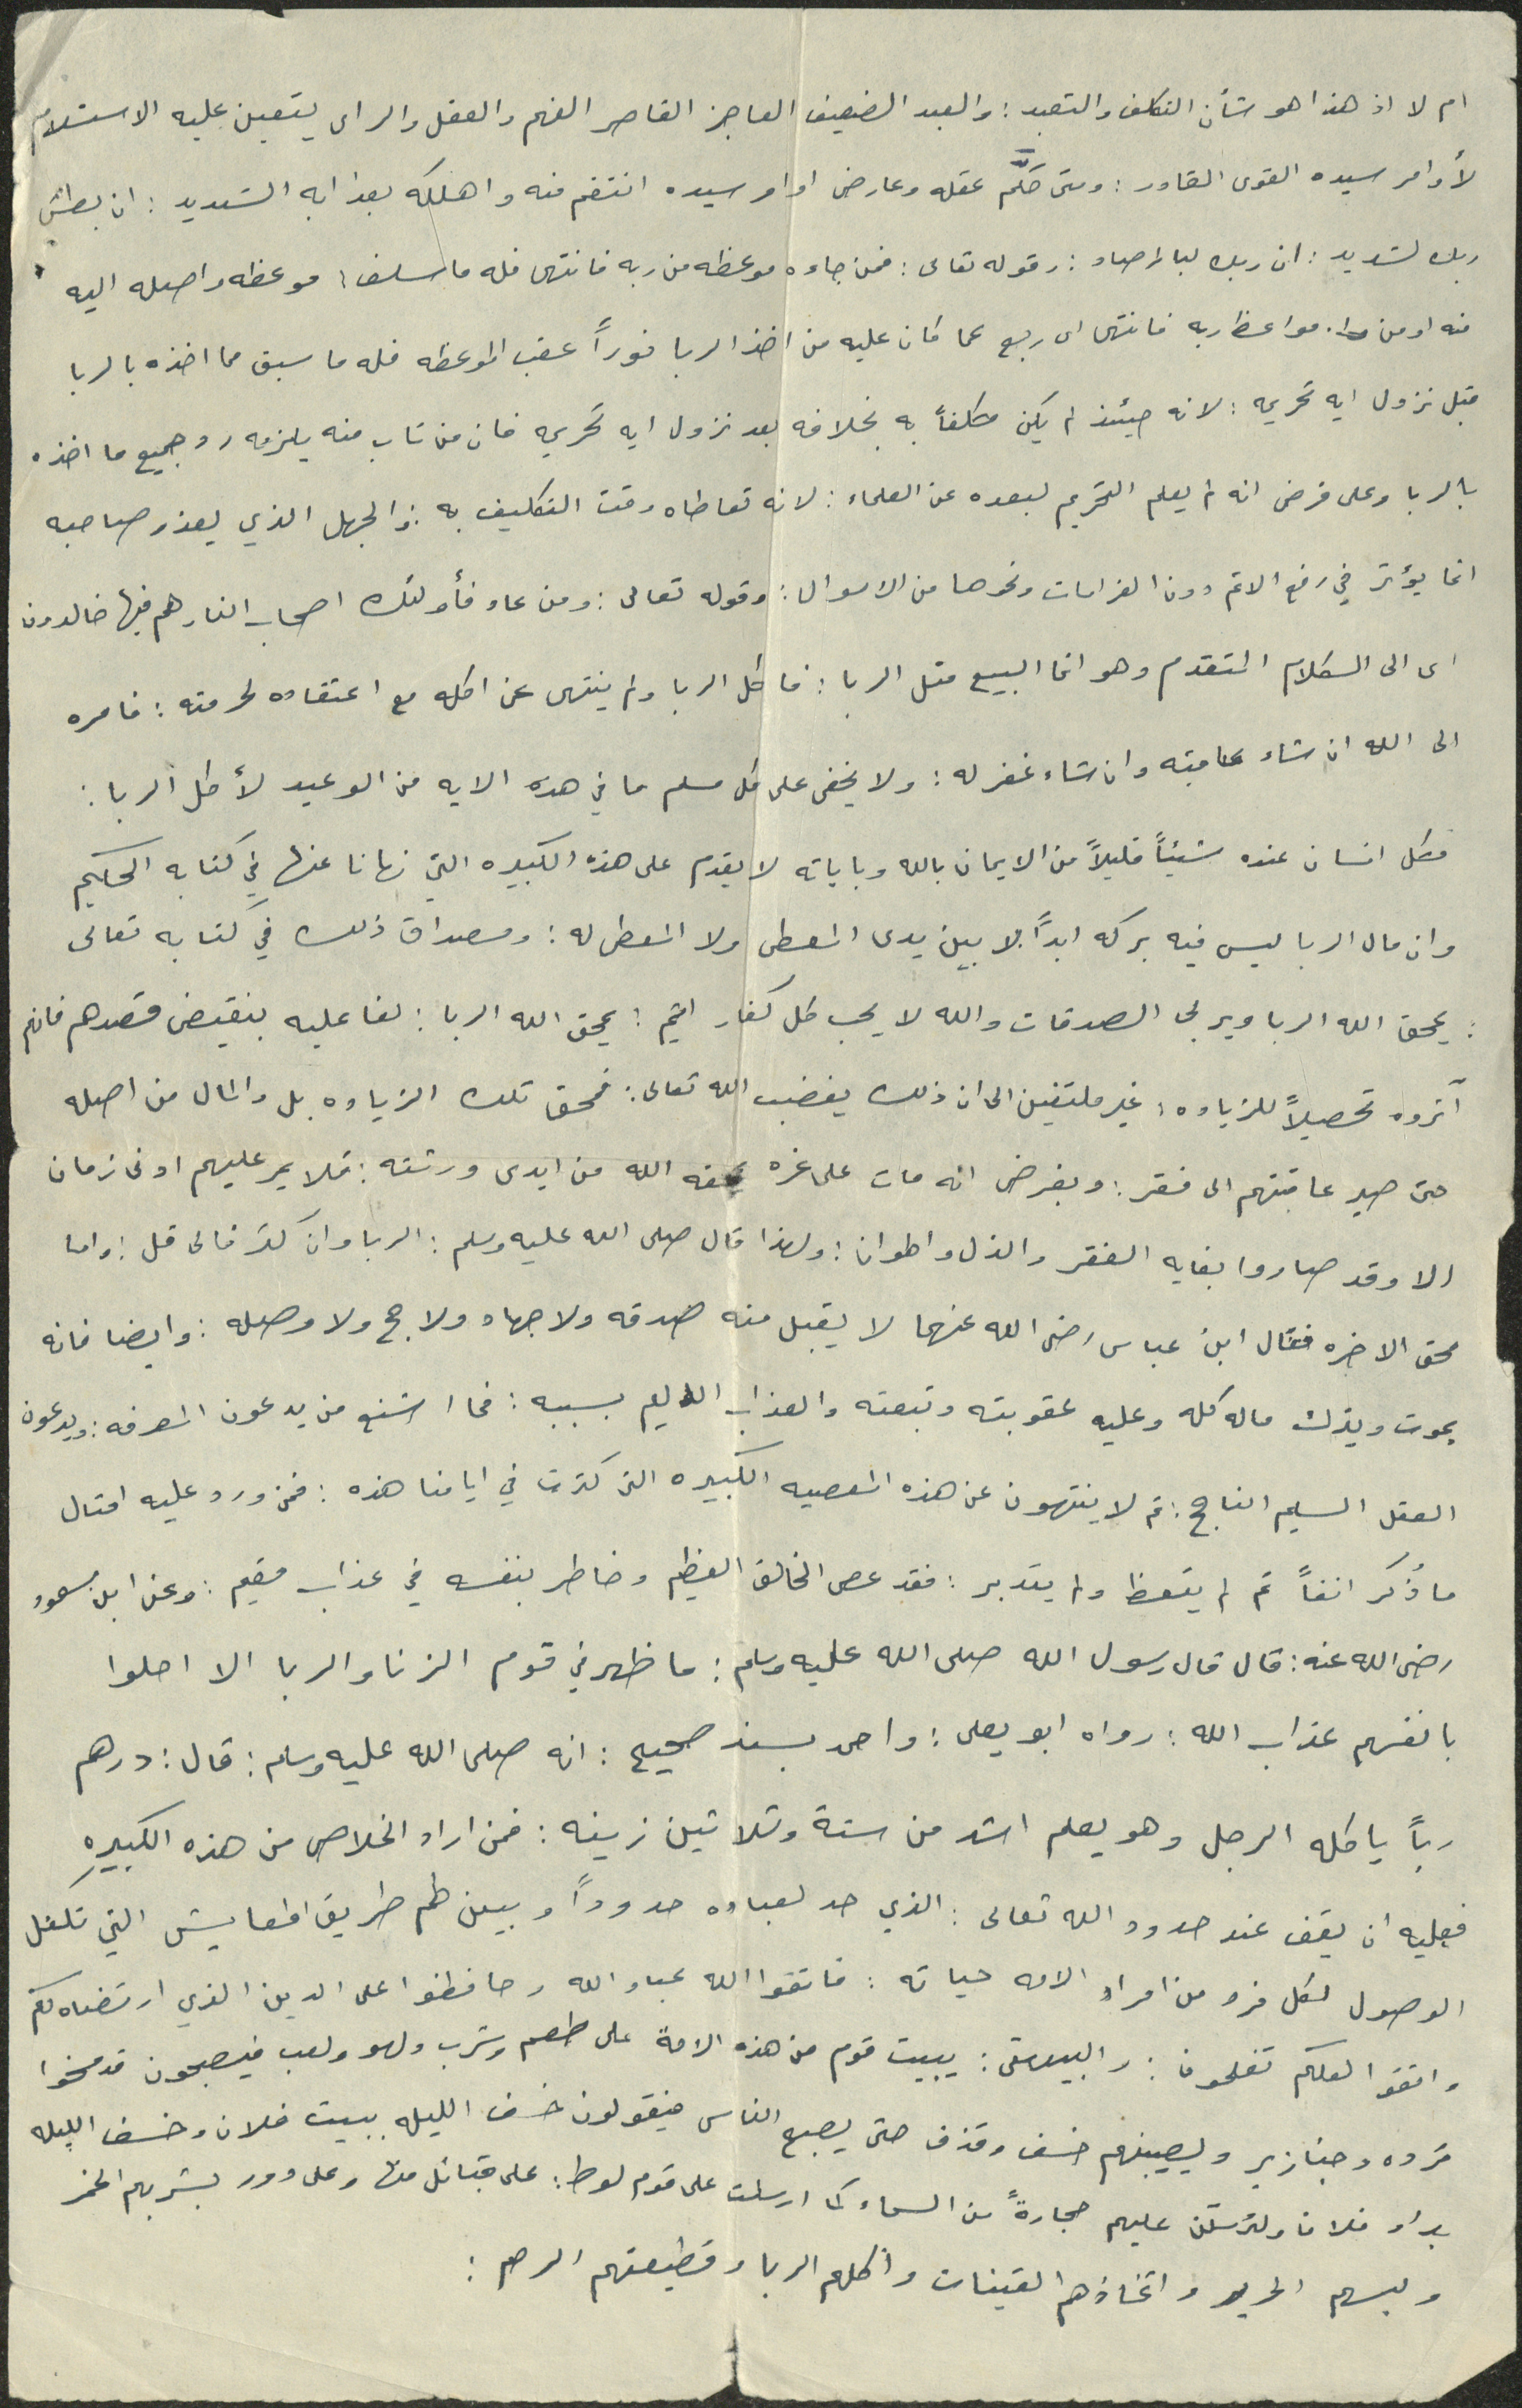 ام لا اذ هذا هو شأن التكلف والتعبد : والعبد الضعيف العاجز القاصر الفهم والعقل والراى يتعين عليه الاستسلام
لأوامر سيده القوى القادر : ومتى حَكَّم عقله وعارض اوامر سيده انتقم منه واهلكه بعذابه الشديد : ان بطش
ربك لشديد : ان ربك لبالمرصاد : وقوله تعالى : فمن جاءه موعظه من ربه فانتهى فله ما سلف : موعظه واصله اليه
منه او من مواعظ ربه فانتهى اى رجع عما كان عليه من اخذ الربا فوراً عقب الموعظه فله ما سبق مما اخذه بالربا
قبل نزول ايه تحريمه : لانه حينئذ لم يكن مكلفاً به بخلافه بعد نزول ايه تحريمه فان من تاب منه يلزمه رد جميع ما اخذه
بالربا وعلى فرض انه لم يعلم التحريم لبعده عن العلماء : لانه تعاطاه وقت التكليف به : والجهل الذي يعذر صاحبه
انما يؤثر في رفع الاثم دون الغرامات ونحوها من الاموال : وقوله تعالى : ومن عاد فأولئك اصحاب النار هم فيها خالدون
اى الى الكلام المتقدم وهو انما البيع مثل الربا : فاكل الربا ولم ينتهى عن اكله مع اعتقاده لحرمته : فامره
الى الله ان شاء عاقبه وان شاء غفر له : ولا يخفى على كل مسلم ما في هذه الايه من الوعيد لأكل الربا :
فكل انسان عنده شيئاً قليلاً من الايمان بالله وباياته لا يقدم على هذه الكبيره التي نهانا عنها في كتابه الحكيم
وان مال الربا ليس فيه بركه ابداً لا بين يدى المعطى ولا المعطى له : ومصداق ذلك في كتابه تعالى
: يمحق الله الربا ويربى الصدقات والله لا يحب كل كفار اثيم : يمحق الله الربا : لفاعليه بنقيض قصدهم فانهم
آثروه تحصيلاً للزياده : غير ملتفتين الى ان ذلك يغضب الله تعالى : فمحق تلك الزياده بل والمال من اصله
حتى صير عاقبتهم الى فقر : وبفرض انه مات على غره محقه الله من ايدى ورثته : فلا يمر عليهم ادنى زمان
الا وقد صاروا بغايه الفقر والذل والهوان : ولهذا قال صلى الله عليه وسلم : الربا وان كثر فالى قل : واما
محق الاخره فقال ابن عباس رضى الله عنهما لا يقبل منه صدقه ولا جهاد ولا حج ولا وصله : وايضا فانه
يموت ويترك ماله كله وعليه عقوبته وتبعته والعذاب الاليم بسببه : فما اشنع من يدعون المعرفه : ويدعون
العقل السليم الناجح : ثم لا ينتهون عن هذه المعصيه الكبيره التى كثرت في ايامنا هذه : فمن ورد عليه امثال
ما ذُكر انفاً ثم لم يتعظ ولم يتدبر : فقد عصى الخالق العظيم وخاطر بنفسه في عذاب مقيم : وعن ابن مسعود
رضى الله عنه : قال قال رسول الله صلى الله عليه وسلم : ما ظهر في قوم الزنا والربا الا احلوا
بانفسهم عذاب الله : رواه ابو يعلى : واحمد بسند صحيح : انه صلى الله عليه وسلم : قال : درهم
رباً ياكله الرجل وهو يعلم اشد من ستة وثلاثين زينه : فمن اراد الخلاص من هذه الكبيره
فعليه ان يقف عند حدود الله تعالى : الذي حد لعباده حدوداً وبين لهم طريق المعايش التي تكفل
الوصول لكل فرد من افراد الامه حياته : فاتقوا الله عباد الله وحافظوا على الدين الذي ارتضاه لكم
واتقوا لعلكم تفلحون : والبيهقى : يبيت قوم من هذه الامة على طعم وشرب ولهو ولعب فيصبحون قد مسخوا
قرده وخنازير وليصيبنهم خسف وقذف حتى يصبح الناس فيقولون خسف الليله ببيت فلان وخسف الليله
بدار فلان ولترسلن عليهم حجارةً من السماء كما ارسلت على قوم لوط : على قبائل منها وعلى دور بشربهم الخمر
ولبسهم الحرير واتخاذهم القينات واكلهم الربا وقطيعتهم الرحم :